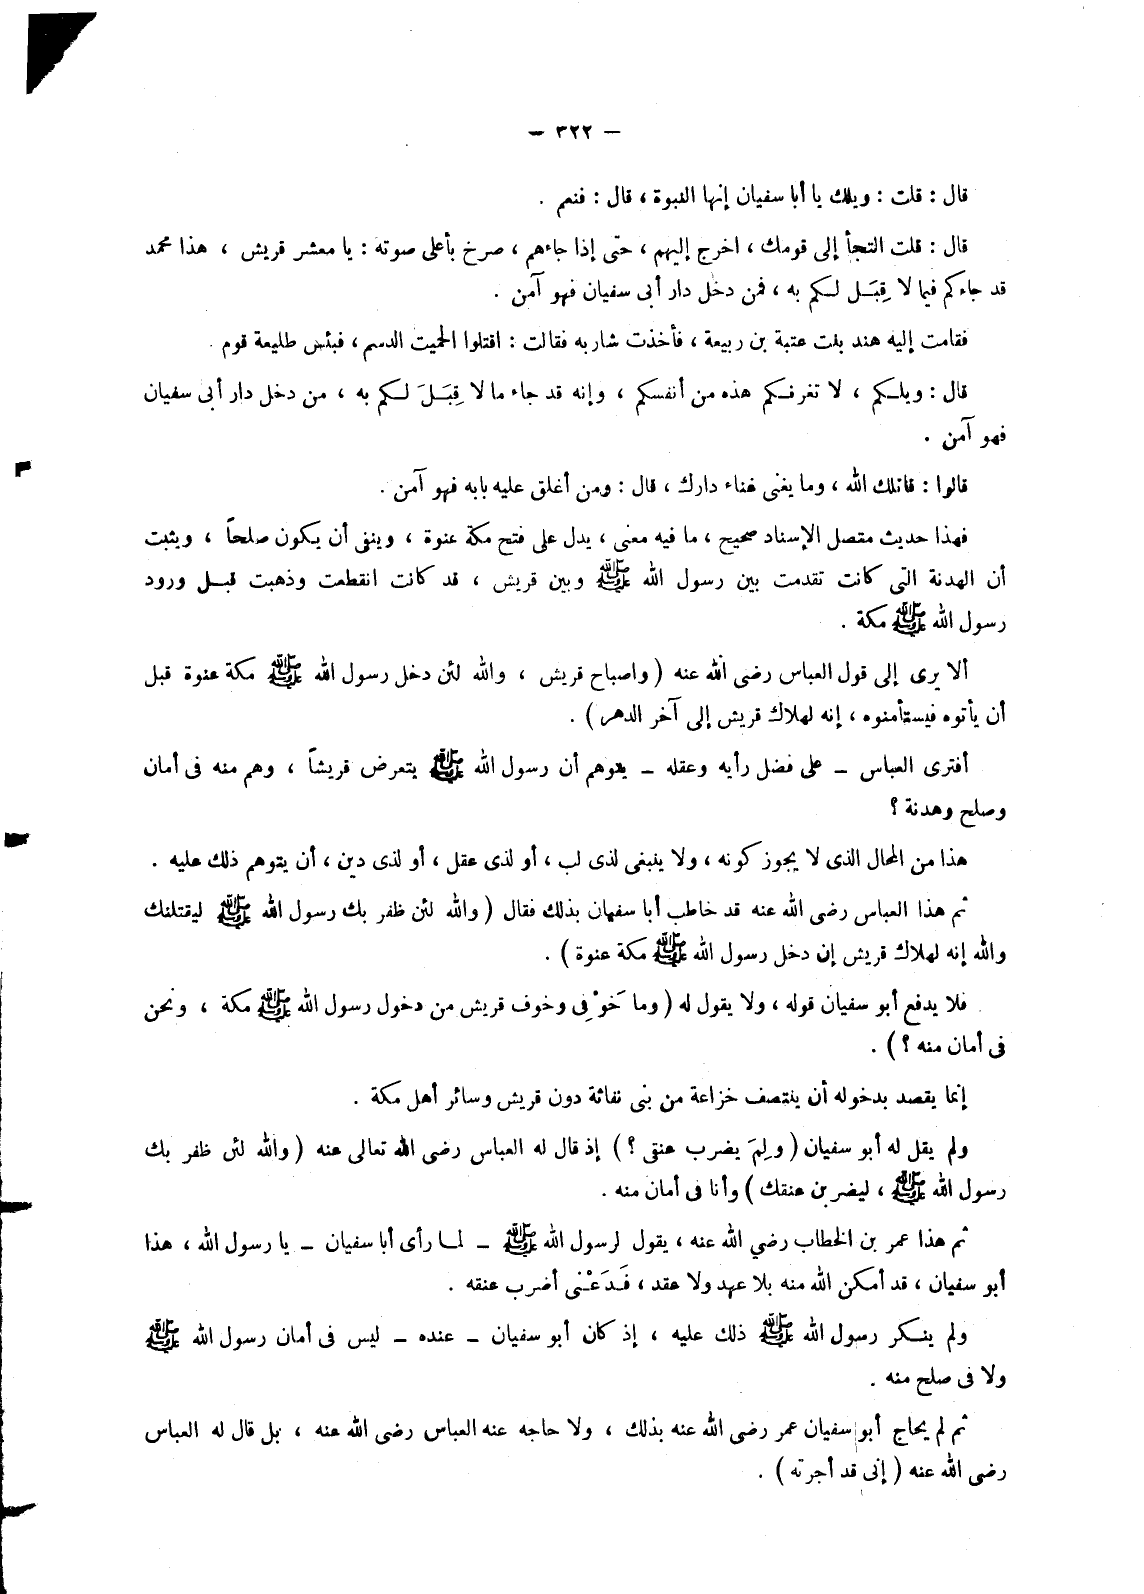 — ٣٢٢ —
قال : قلت : ويلك يا أبا سفيان إنها النبوة ، قال : فنعم .
قال : قلت النجأ إلى قومك ، اخرج إليهم ، حتى إذا جاءهم ، صرخ بأعلى صوته : يا معشر قريش ، هذا محمد
قد جاءكم فيما لا قِبَـل لـكم به ، فمن دخل دار أبى سفيان فهو آمن .
فقامت إليه هند بنت عتبة بن ربيعة ، فأخذت شاربه فقالت : اقتلوا الحميت الدسم ، فبئس طليعة قوم .
قال : ويلـكم ، لا تغرنـكم هذه من أنفسكم ، وإنه قد جاء ما لا قِبَـلَ لـكم به ، من دخل دار أبى سفيان
فهو آمن .
قالوا : قاتلك الله ، وما يغنى غناء دارك ، قال : ومن أغلق عليه بابه فهو آمن .
فهذا حديث متصل الإسناد صحيح ، ما فيه معنى ، يدل على فتح مكة عنوة ، وينفى أن يكون صلحاً ، ويثبت
أن الهدنة التى كانت تقدمت بين رسول الله ﷺ وبين قريش ، قد كانت انقطعت وذهبت قبـل ورود
رسول الله ﷺ مكة .
ألا يرى إلى قول العباس رضى الله عنه ( واصباح قريش ، والله لئن دخل رسول الله ﷺ مكة عنوة قبل
أن يأتوه فيستأمنوه ، إنه لهلاك قريش إلى آخر الدهر ) .
أفترى العباس – على فضل رأيه وعقله – يتوهم أن رسول الله ﷺ يتعرض قريشاً ، وهم منه فى أمان
وصلح وهدنة ؟
هذا من المحال الذى لا يجوز كونه ، ولا ينبغى لذى لب ، أو لذى عقل ، أو لذى دين ، أن يتوهم ذلك عليه .
ثم هذا العباس رضى الله عنه قد خاطب أبا سفيان بذلك فقال ( والله لئن ظفر بك رسول الله ﷺ ليقتلنك
والله إنه لهلاك قريش إن دخل رسول الله ﷺ مكة عنوة ) .
فلا يدفع أبو سفيان قوله ، ولا يقول له ( وما خَوْفِى وخوف قريش من دخول رسول الله ﷺ مكة ، ونحن
فى أمان منه ؟ ) .
إنما يقصد بدخوله أن ينتصف خزاعة من بنى نفاثة دون قريش وسائر أهل مكة .
ولم يقل له أبو سفيان ( ولِمَ يضرب عنقى ؟ ) إذ قال له العباس رضى الله تعالى عنه ( والله لئن ظفر بك
رسول الله ﷺ ، ليضربن عنقك ) وأنا فى أمان منه .
ثم هذا عمر بن الخطاب رضي الله عنه ، يقول لرسول الله ﷺ – لمـا رأى أبا سفيان – يا رسول الله ، هذا
أبو سفيان ، قد أمكن الله منه بلا عهد ولا عقد ، فَـدَعْـنى أضرب عنقه .
ولم ينـكر رسول الله ﷺ ذلك عليه ، إذ كان أبو سفيان – عنده – ليس فى أمان رسول الله ﷺ
ولا فى صلح منه .
ثم لم يحاج أبو سفيان عمر رضى الله عنه بذلك ، ولا حاجه عنه العباس رضى الله عنه ، بل قال له العباس
رضى الله عنه ( إنى قد أجرته ) .